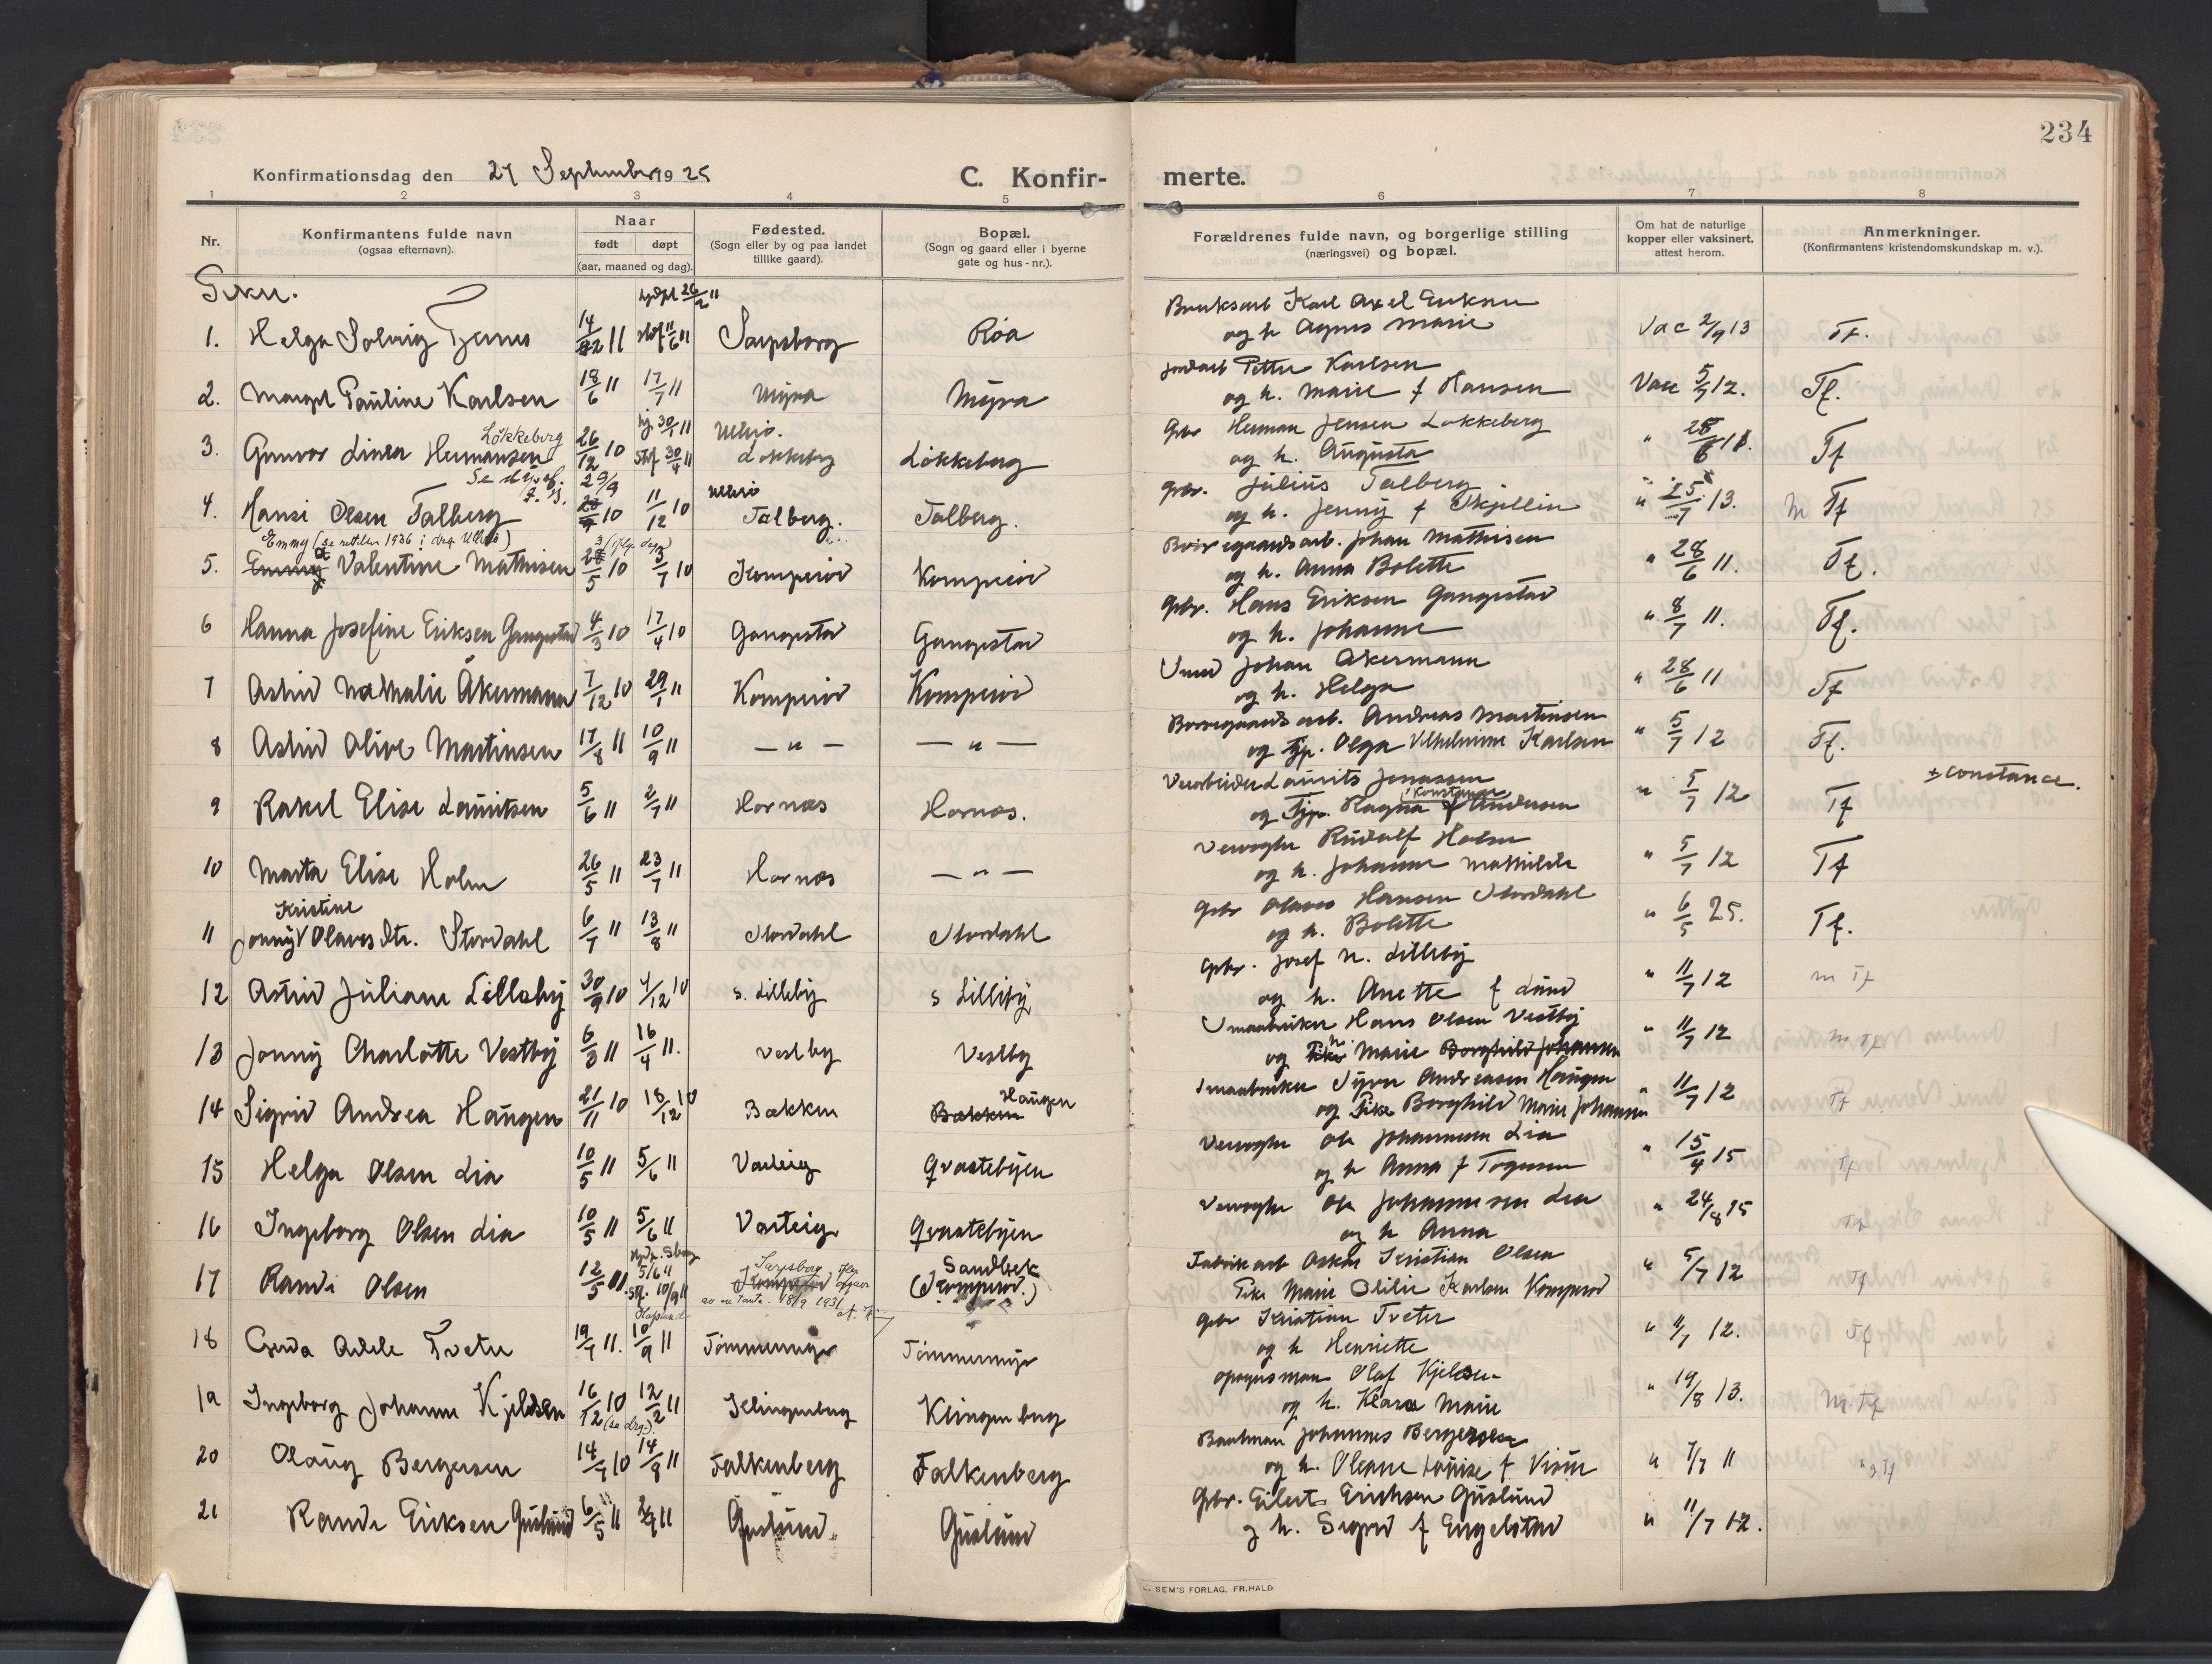 234
Konfirmationsdag den 27 September 1925
C. Konfir- merte.
1 2 3 4 5 6 7 8
Nr.
Konfirmantens fulde navn (ogsaa efternavn).
Naar født døpt (aar, maaned og dag).
Fødested. (Sogn eller by og paa landet tillike gaard).
Bopæl. (Sogn og gaard eller i byerne gate og hus-nr.).
Forældrenes fulde navn, og borgerlige stilling (næringsvei) og bopæl.
Om hat de naturlige kopper eller vaksinert, attest herom.
Anmerkninger. (Konfirmantens kristendomskundskap m. v.).
Piker.
hjdpt 26/2 11
Bruksarb Karl Axel Eriksen
1. Helga Solveig 14/12 11 stf 11/6 11 Sarpsborg Roa og h Agnes Marie Vac 2/9 13 Tf.
Jordarb Petter Karlsen
2. Margit Pauline Karlsen 18/6 11 17/7 11 Myra Myra og h. Marie f Hansen Vac 5/7 12. Tf.
Løkkeberg hj 30/1 11 Ullerø.
Gbr Herman Jensen Løkkeberg
3. Gunvor Linea Hermansen 26/12 10 stf 30/4 11 Løkkeberg Løkkeberg og h. Augusta " 28/6 11. Tf
29/9 Ullerø
Gbr. Julius Talberg
4. Hansi Olsen Talberg 10 11/12 10 Talberg. Talberg. og h. Jenny f Skjellin " 25/7 13. m Tf
Emmy (se rettelsen 1936 i drg Ullerø)
Borregaardsarb. Johan Mathisen
5. Emmy Valentine Mathisen 28/5 10 3/7 10 Komperød Komperød og h. Anna Bolette " 28/6 11. Tf.
Gbr. Hans Eriksen Gangestad
6 Hanna Josefine Eriksen Gangestad 4/3 10 17/4 10 Gangestad Gangestad og h. Johanne " 8/7 11. Tf.
Smed Johan Åkermann
7 Astrid Nathalie Åkermann 7/12 10 29/1 11 Komperød Komperød og h. Helga " 28/6 11 Tf
Borregaardsarb. Andreas Martinsen
8 Astrid Olive Martinsen 17/8 11 10/9 11 — " — — " — og Tjp. Olga Vilhelmine Karlsen " 5/7 12 Tf.
Veiarbeider Laurits Jonassen ± constance.
Konstance
9 Rakel Elise Lauritsen 5/6 11 2/7 11 Hornæs Hornæs. og Tjp. Ragna f Andersen " 5/7 12 Tf
Veivogter Rudolf Holm
10 Marta Elise Holm 26/5 11 23/7 11 Hornæs — " — og h. Johanne Mathilde " 5/7 12 Tf
Kristine
Gbr Olaves Hansen Stordahl
11 Jenny Olaves dtr. Stordahl 6/7 11 13/8 11 Stordahl Stordahl og h. Bolette " 6/5 25. Tf.
Gbr. Josef N. Lilleby
12 Astrid Juliane Lilleby 30/9 10 4/12 10 s. Lilleby s Lilleby og h. Anette f Lund " 11/7 12 m Tf
Smaabruker Hans Olsen Vestby
13 Jenny Charlotte Vestby 6/3 11 16/4 11. Vestby Vestby og h Marie Borghild Johansen " 11/7 12 m Tf
Haugen
Smaabruker Syver Andreasen Haugen
14 Sigrid Andrea Haugen 21/11 10 18/12 10 Bækken Bækken og Pike Borghild Marie Johansen " 11/7 12 Tf
Veivogter Ole Johannesen Lia
15 Helga Olsen Lia 10/5 11 5/6 11 Varteig Qvastebyen og h Anna f Torgersen " 15/4 15 Tf
Veivogter Ole Johannesen Lia
16 Ingeborg Olsen Lia 10/5 11 5/6 11 Varteig Qvastebyen og h Anna " 24/8 15 Tf
5/6 11 Sarpsborg Sandbæk
Fabrikarb Oskar Kristian Olsen
17 Randi Olsen 12/5 11. stf. 10/9 11 Komperød (Komperød.) Pike Marie Otilie Karlsen Komperød " 5/7 12 Tf
Hafslund
av en Tante. 18/9 1931
Gbr Kristian Tveter
18 Gerda Adele Tveter 19/7 11. 10/9 11 Tømmermyr Tømmermyr og h Henriette " 11/7 12. Tf
Opsynsman Olaf Kjeldsen
19 Ingeborg Johanne Kjeldsen 16/12 10 12/2 11 Klingenberg Klingenberg og h. Klara Marie " 19/8 13. m Tf
(se drg.)
Baatsman Johannes Bergersen
20 Olaug Bergersen 14/7 10 14/9 11 Falkenberg Falkenberg og h. Oleane Louise f " 7/7 11 Tf
Gbr. Eilert Erichsen Guslund
21 Randi Eriksen Guslund 6/5 11 2/7 11 Guslund Guslund og h. Sigrid f Engelstad " 11/7 12.
SEM'S FORLAG, FR.HALD.